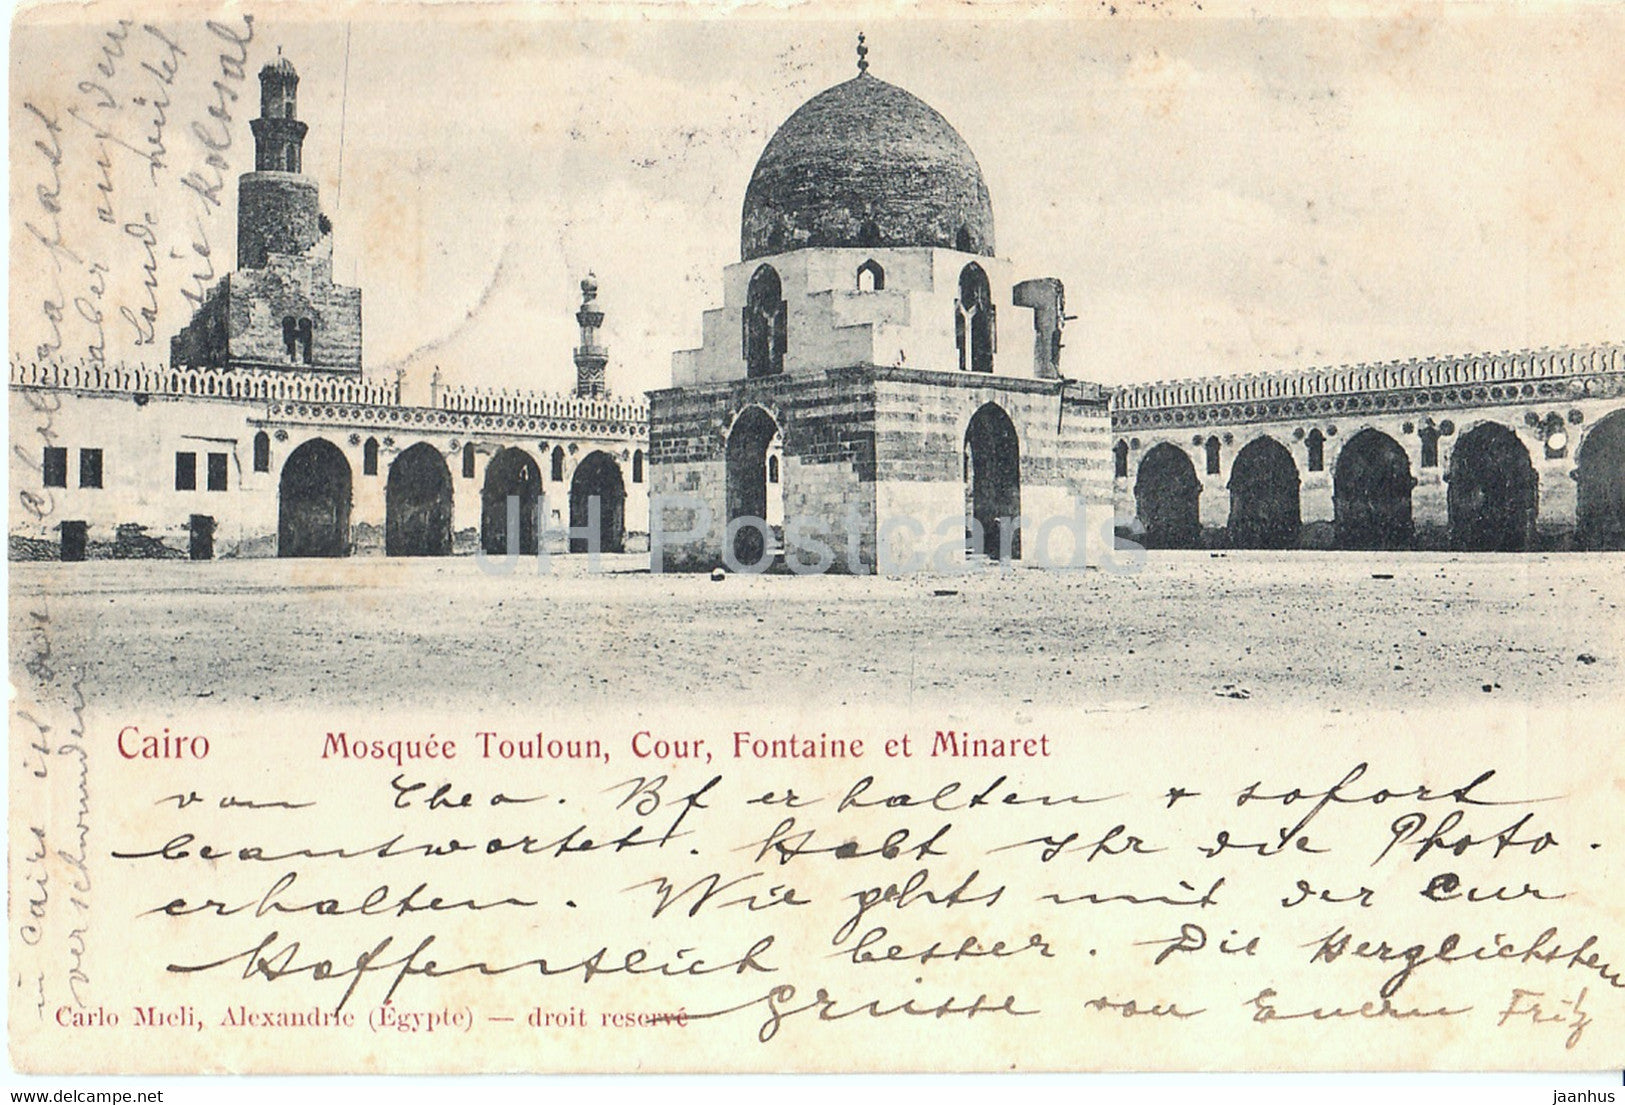 in Cairo ist die Cholera fast
verschwunden aber auf dem
Lande wütet
sie kolosal.
JH Postcards
Cairo Mosquée Touloun, Cour, Fontaine et Minaret
von Theo. Bf erhalten + sofort
beantwortet. Habt Ihr die Photo.
erhalten. Wie gehts mit der Cur
Hoffentlich besser. Die Herzlichsten
Carlo Mieli, Alexandrie (Égypte) — droit reservé
Grüsse von Euerm Fritz
delcampe.net
jaanhus